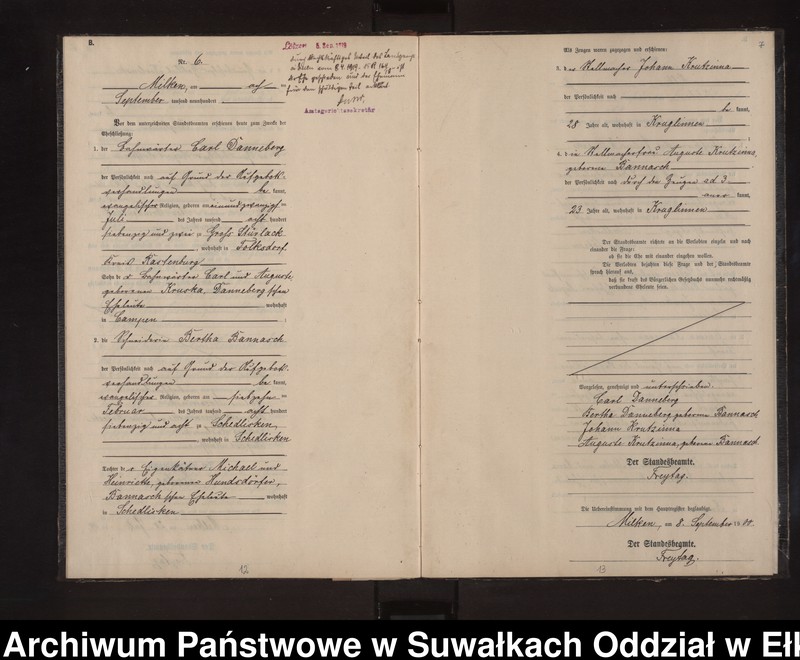 B.
Nr. 6.
Milken, am acht
September tausend neunhundert
Vor dem unterzeichneten Standesbeamten erschienen heute zum Zwecke der
Eheschließung:
1. der Bahnwärter Carl Danneberg
der Persönlichkeit nach auf Grund der Aufgebots-
verhandlungen be kannt,
evangelischer Religion, geboren am einundzwanzigsten
Juli des Jahres tausend acht hundert
siebenzig und zwei zu Groß Stürlack
, wohnhaft in Tolksdorf
Kreis Rastenburg
Sohn des Bahnwärter Carl und Auguste,
geborener Kruska, Danneberg'schen
Eheleute wohnhaft
in Campen
2. die Schneiderin Bertha Bannasch
der Persönlichkeit nach auf Grund der Aufgebots-
verhandlungen be kannt,
evangelischer Religion, geboren am siebzehn ten
Februar des Jahres tausend acht hundert
siebenzig und acht zu Schedlisken
, wohnhaft in Schedlisken
Tochter des Eigenkätner Michael und
Heinriette, geborener Hundsdörfer,
Bannasch'schen Eheleute wohnhaft
in Schedlisken
12
Lötzen
Amtsgerichtssekretär
7
Als Zeugen waren zugezogen und erschienen:
3. der Stellmacher Johann Krutzinna
der Persönlichkeit nach
be kannt,
28 Jahre alt, wohnhaft in Kruglinnen
4. die Stellmacherfrau Auguste Krutzinna,
geborene Bannasch
der Persönlichkeit nach durch den Zeugen ad. 3
aner kannt,
23 Jahre alt, wohnhaft in Kruglinnen
Der Standesbeamte richtete an die Verlobten einzeln und nach
einander die Frage:
ob sie die Ehe mit einander eingehen wollen.
Die Verlobten bejahten diese Frage und der Standesbeamte
sprach hierauf aus,
daß sie kraft des Bürgerlichen Gesetzbuchs nunmehr rechtmäßig
verbundene Eheleute seien.
Vorgelesen, genehmigt und unterschrieben.
Carl Danneberg
Bertha Danneberg geborene Bannasch
Johann Krutzinna
Auguste Krutzinna, geborene Bannasch
Der Standesbeamte.
Freytag.
Die Uebereinstimmung mit dem Hauptregister beglaubigt.
Milken, am 8. September 1900
Der Standesbeamte.
Freytag.
13
Archiwum Państwowe w Suwałkach Oddział w Eł